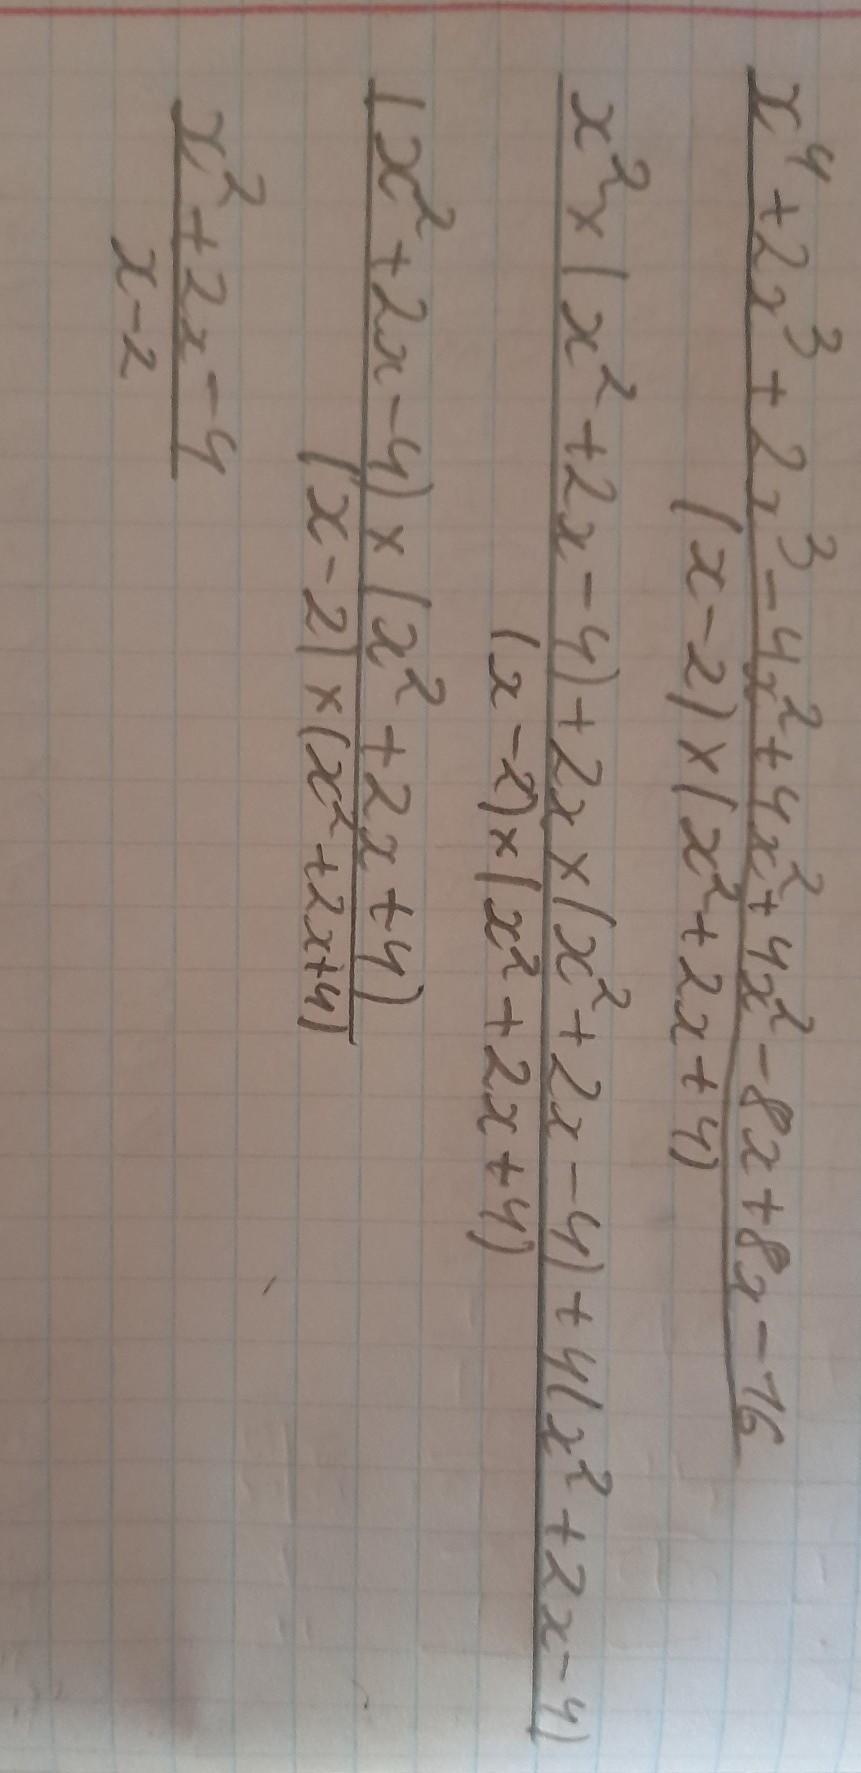 x⁴+2x³+2x³-4x²+4x²+4x²-8x+8x-16
(x-2)×(x²+2x+4)
x²×(x²+2x-4)+2x×(x²+2x-4)+4(x²+2x-4)
(x-2)×(x²+2x+4)
(x²+2x-4)×(x²+2x+4)
(x-2)×(x²+2x+4)
x²+2x-4
x-2